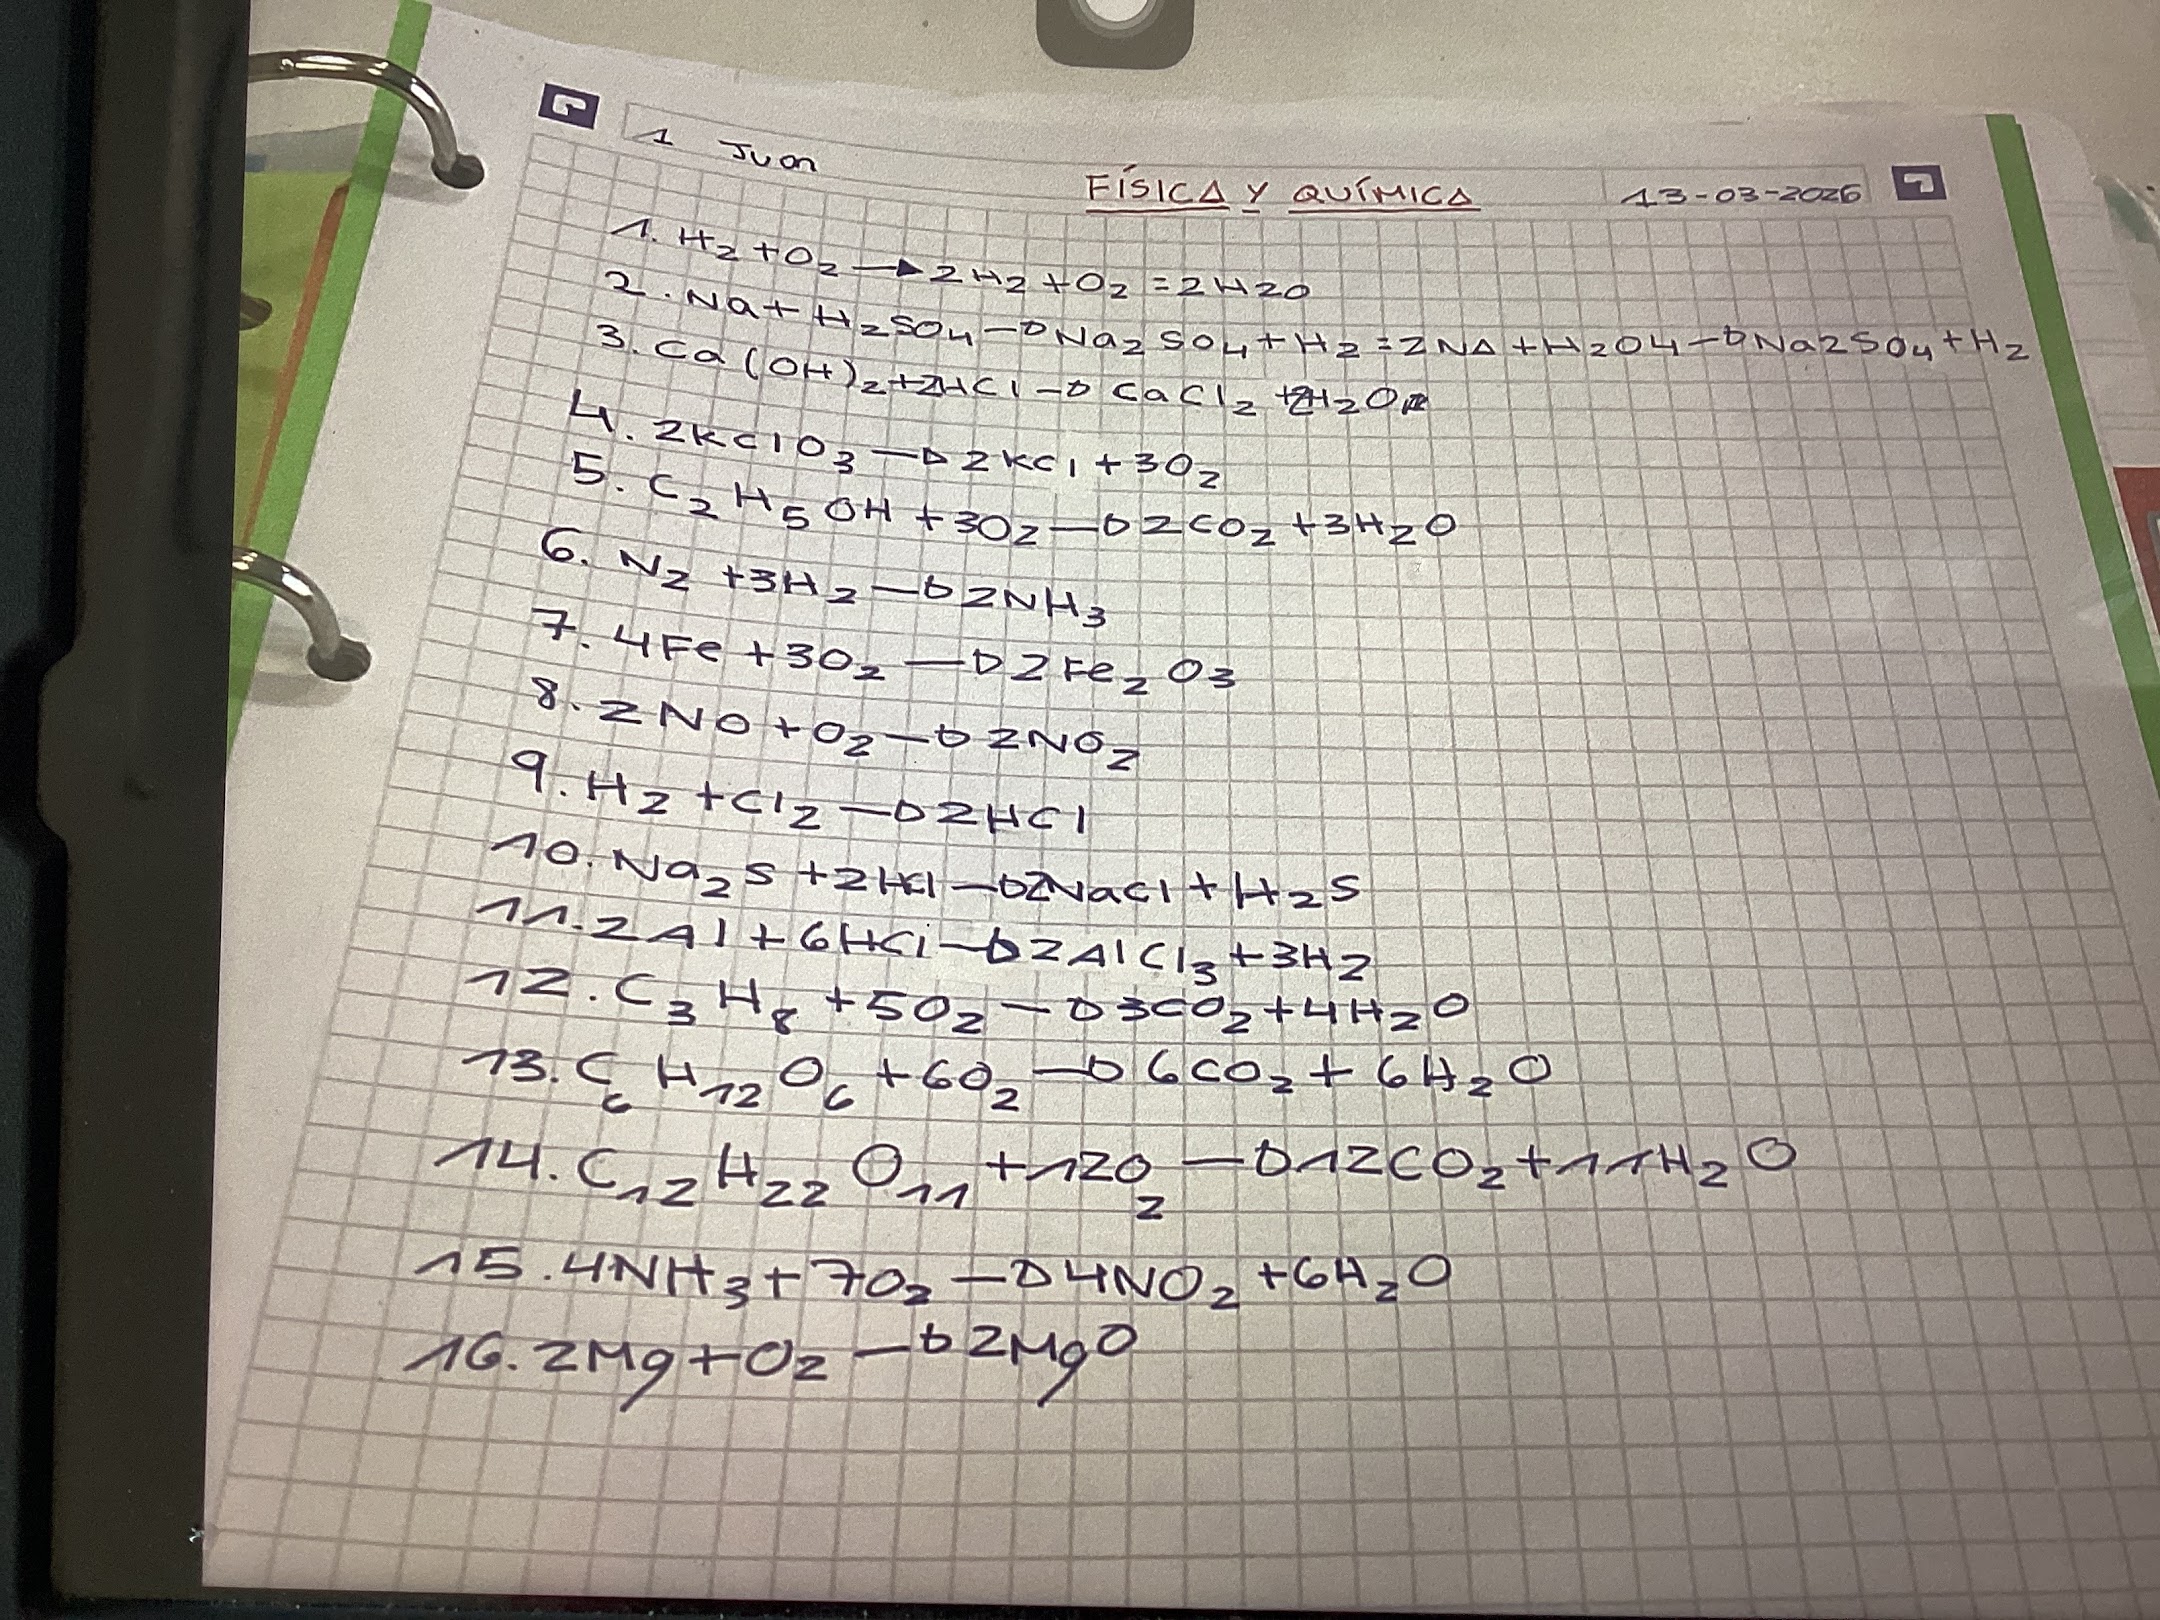 1 Juan
FÍSICA Y QUÍMICA 13-03-2026
1. H2 + O2 → 2H2 + O2 = 2H2O
2. Na + H2SO4 → Na2SO4 + H2 = 2NA + H2O4 → Na2SO4 + H2
3. Ca(OH)2 + 2HCl → CaCl2 + 2H2O
4. 2KClO3 → 2KCl + 3O2
5. C2H5OH + 3O2 → 2CO2 + 3H2O
6. N2 + 3H2 → 2NH3
7. 4Fe + 3O2 → 2Fe2O3
8. 2NO + O2 → 2NO2
9. H2 + Cl2 → 2HCl
10. Na2S + 2HCl → 2NaCl + H2S
11. 2Al + 6HCl → 2AlCl3 + 3H2
12. C3H8 + 5O2 → 3CO2 + 4H2O
13. C6H12O6 + 6O2 → 6CO2 + 6H2O
14. C12H22O11 + 12O2 → 12CO2 + 11H2O
15. 4NH3 + 7O2 → 4NO2 + 6H2O
16. 2Mg + O2 → 2MgO